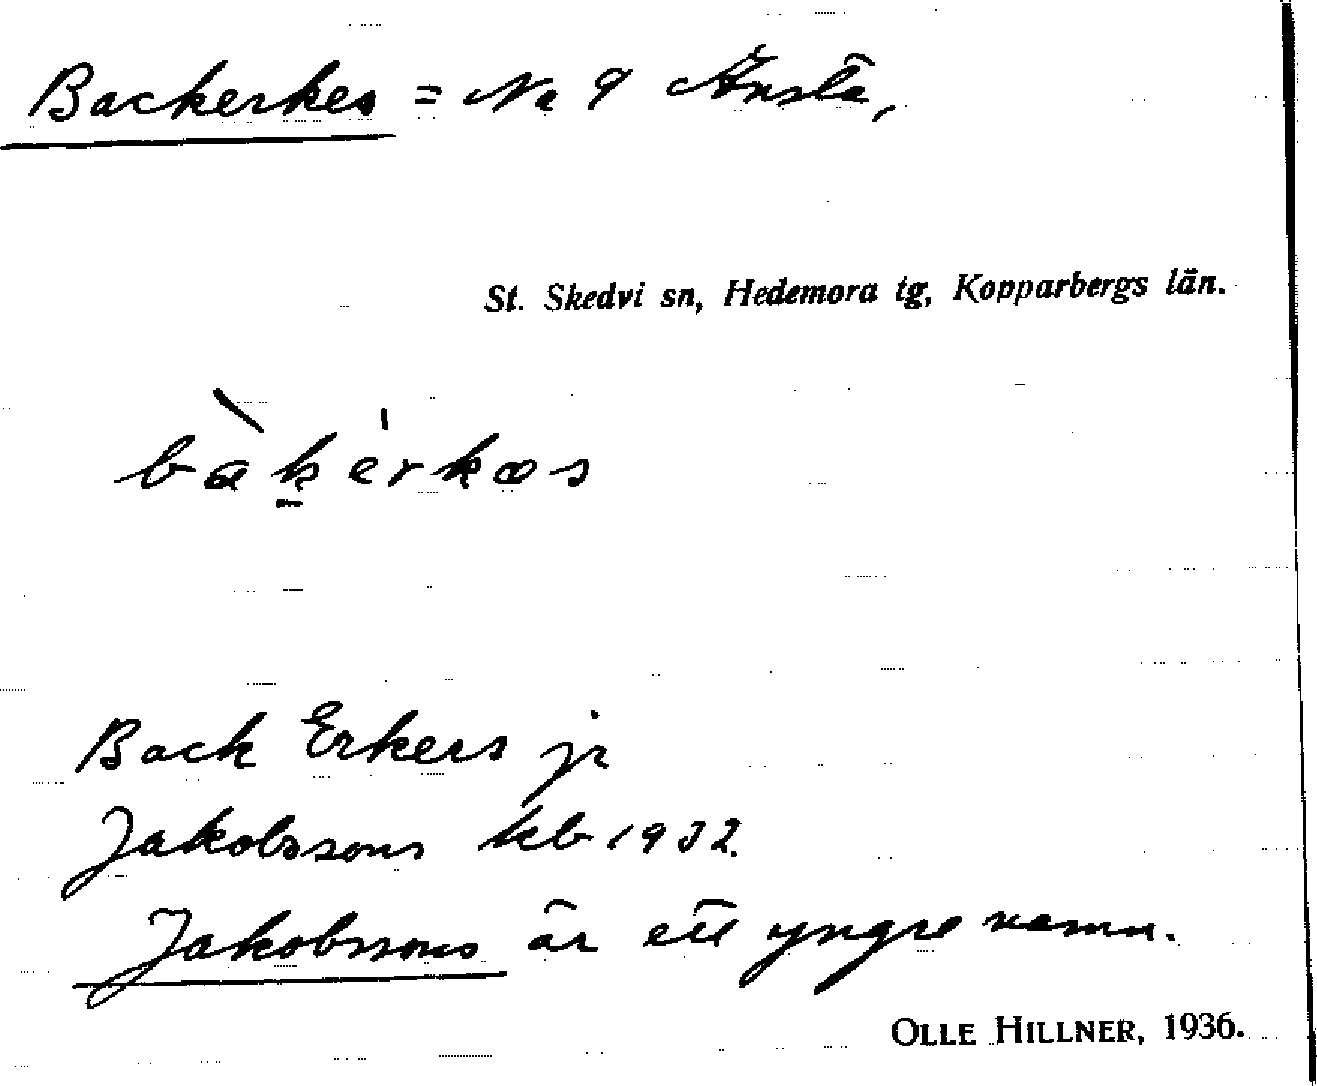 Backerkes = No 9 Änsta,
St. Skedvi sn, Hedemora tg, Kopparbergs län.
bàkérkəs
Back Erkers jr
Jakobssons kb 1932.
Jakobssons är ett yngre namn.
OLLE HILLNER, 1936.